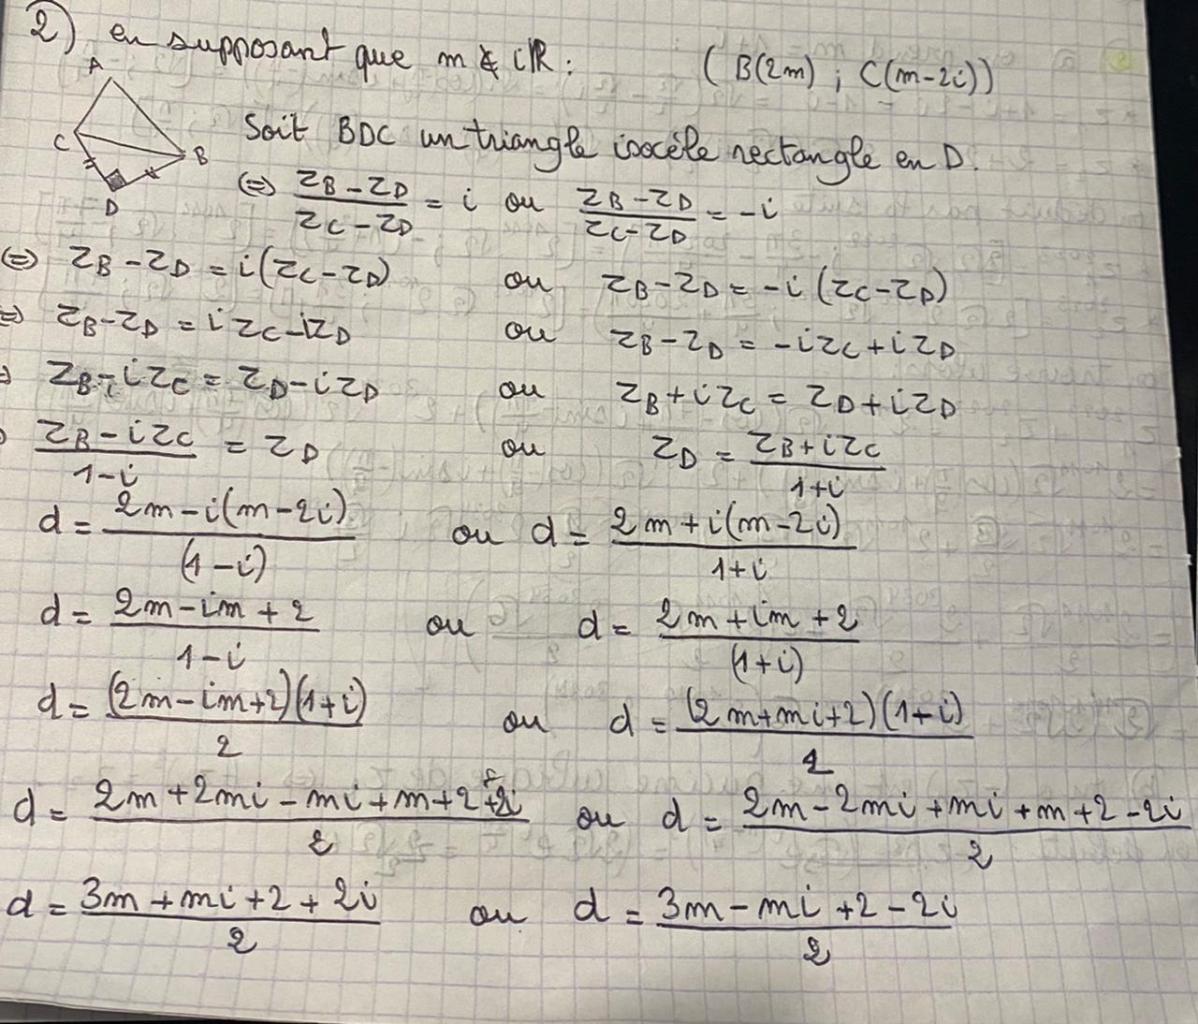 2) en supposant que m ∉ iℝ : ( B(2m) ; C(m-2i))
A
C
B
D
Soit BDC un triangle isocèle rectangle en D.
(=) (zB - zD)/(zC - zD) = i ou (zB - zD)/(zC - zD) = -i
(=) zB - zD = i(zC - zD) ou zB - zD = -i(zC - zD)
=) zB - zD = i zC - izD ou zB - zD = -izC + izD
zB - izC = zD - izD ou zB + izC = zD + izD
(zB - izC)/(1-i) = zD ou zD = (zB + izC)/(1+i)
d = (2m - i(m-2i))/(1-i) ou d = (2m + i(m-2i))/(1+i)
d = (2m - im + 2)/(1-i) ou d = (2m + im + 2)/(1+i)
d = ((2m - im + 2)(1+i))/2 ou d = ((2m + mi + 2)(1-i))/2
d = (2m + 2mi - mi + m + 2 + 2i)/2 ou d = (2m - 2mi + mi + m + 2 - 2i)/2
d = (3m + mi + 2 + 2i)/2 ou d = (3m - mi + 2 - 2i)/2